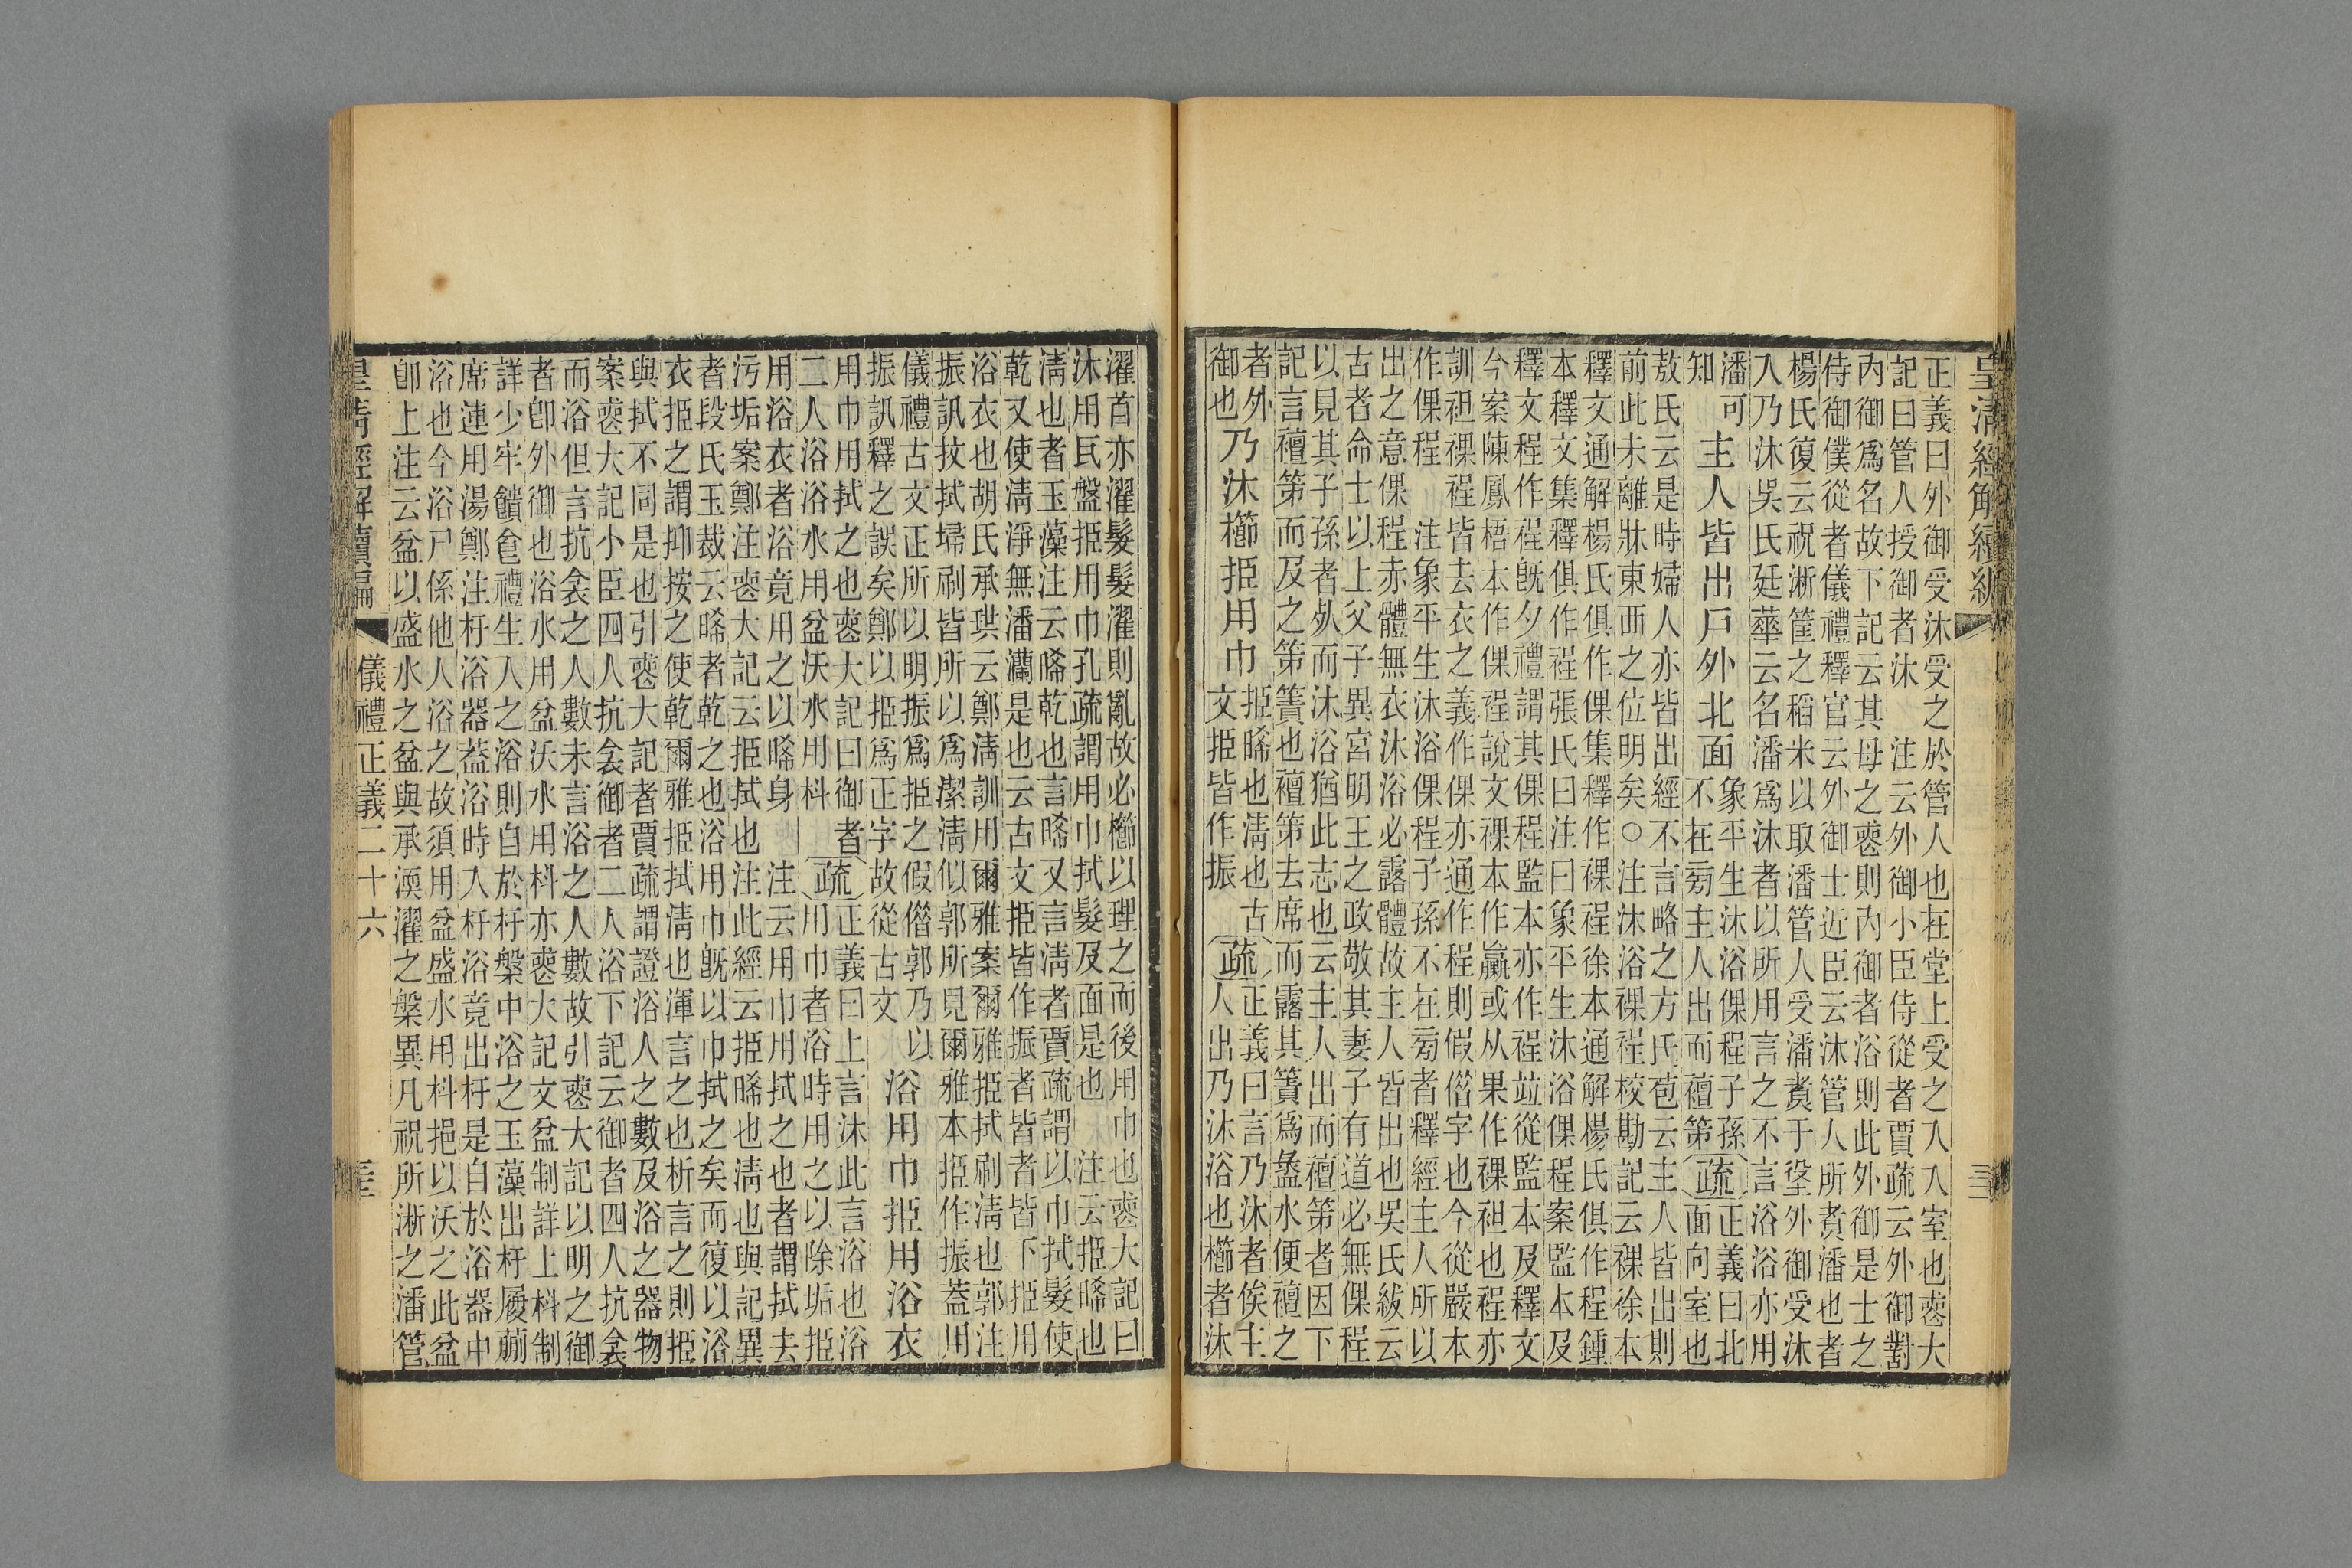 皇清經解續編
正義曰外御受沐受之於管人也在堂上受之入入室也喪大
記曰管人授御者沐 注云外御小臣侍從者賈疏云外御對
內御爲名故下記云其母之喪則內御者浴則此外御是士之
侍御僕從者儀禮釋官云外御士近臣云沐管人所煑潘也者
楊氏復云祝淅筐之稻米以取潘管人受潘煑于垼外御受沐
入乃沐吳氏廷華云名潘爲沐者以所用言之不言浴浴亦用
潘可
知
主人皆出戶外北面
象平生沐浴倮程子孫
不在旁主人出而襢第
疏
正義曰北
面向室也
敖氏云是時婦人亦皆出經不言略之方氏苞云主人皆出則
前此未離牀東西之位明矣○注沐浴裸裎校勘記云裸徐本
釋文通解楊氏俱作倮集釋作裸裎徐本通解楊氏俱作程鍾
本釋文集釋俱作裎張氏曰注曰象平生沐浴倮程案監本及
釋文程作裎旣夕禮謂其倮程監本亦作裎竝從監本及釋文
今案陳鳳梧本作倮裎說文裸本作臝或从果作裸袒也裎亦
訓袒裸裎皆去衣之義作倮亦通作程則假借字也今從嚴本
作倮程 注象平生沐浴倮程子孫不在旁者釋經主人所以
出之意倮程赤體無衣沐浴必露體故主人皆出也吳氏紱云
古者命士以上父子異宮明王之政敬其妻子有道必無倮程
以見其子孫者㱾而沐浴猶此志也云主人出而襢第者因下
記言襢第而及之第簀也襢第去席而露其簀爲盝水便襢之
者外
御也
乃沐櫛挋用巾
挋晞也淸也古
文挋皆作振
疏
正義曰言乃沐者俟主
人出乃沐浴也櫛者沐
濯首亦濯髮髮濯則亂故必櫛以理之而後用巾也喪大記曰
沐用瓦盤挋用巾孔疏謂用巾拭髮及面是也 注云挋晞也
淸也者玉藻注云晞乾也言晞又言淸者賈疏謂以巾拭髮使
乾又使淸淨無潘灡是也云古文挋皆作振者皆者皆下挋用
浴衣也胡氏承珙云鄭淸訓用爾雅案爾雅挋拭刷淸也郭注
振訊抆拭埽刷皆所以爲潔淸似郭所見爾雅本挋作振蓋用
儀禮古文正所以明振爲挋之假借郭乃以
振訊釋之誤矣鄭以挋爲正字故從古文
浴用巾挋用浴衣
用巾用拭之也喪大記曰御者
二人浴浴水用盆沃水用枓
疏
正義曰上言沐此言浴也浴
用巾者浴時用之以除垢挋
用浴衣者浴竟用之以晞身 注云用巾用拭之也者謂拭去
污垢案鄭注喪大記云挋拭也 注此經云挋晞也淸也與記異
者段氏玉裁云晞者乾之也浴用巾旣以巾拭之矣而復以浴
衣挋之謂抑按之使乾爾雅挋拭淸也渾言之也析言之則挋
與拭不同是也引喪大記者賈疏謂證浴人之數及浴之器物
案喪大記小臣四人抗衾御者二人浴下記云御者四人抗衾
而浴但言抗衾之人數未言浴之人數故引喪大記以明之御
者卽外御也浴水用盆沃水用枓亦喪大記文盆制詳上枓制
詳少牢饋食禮生人之浴則自於杅槃中浴之玉藻出杅履蒯
席連用湯鄭注杅浴器葢浴時入杅浴竟出杅是自於浴器中
浴也今浴尸係他人浴之故須用盆盛水用枓挹以沃之此盆
卽上注云盆以盛水之盆與承渜濯之槃異凡祝所淅之潘管
皇淸經解續編 儀禮正義二十六